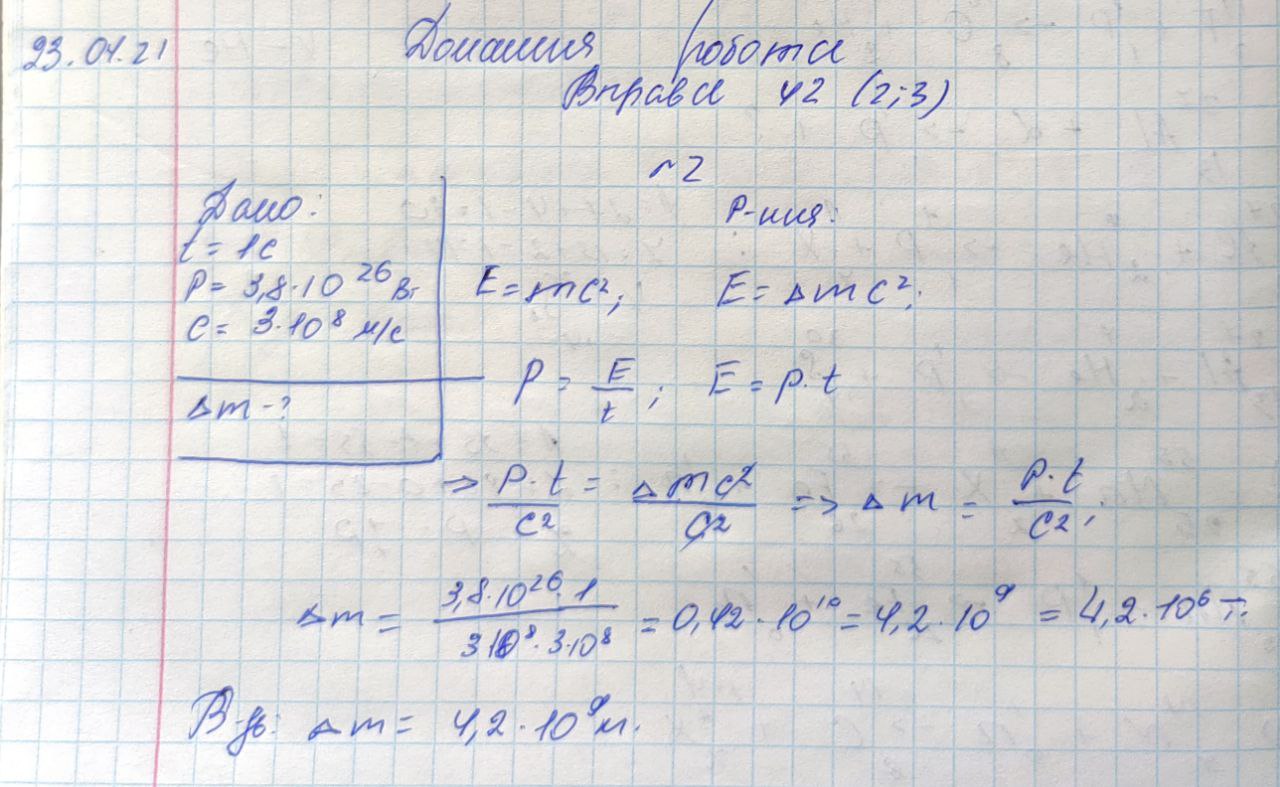 23.04.21 Домашня робота
Вправа 42 (2;3)
№2
Дано: Р-ння:
t = 1c
P = 3,8·10²⁶ Вт E = mc²; E = Δmc²;
c = 3·10⁸ м/с
P = E/t; E = P·t
Δm - ?
=> P·t/c² = Δmc²/c² => Δm = P·t/c²;
Δm = 3,8·10²⁶·1/3·10⁸·3·10⁸ = 0,42·10¹⁰ = 4,2·10⁹ = 4,2·10⁶ т.
В-дь: Δm = 4,2·10⁹ м.